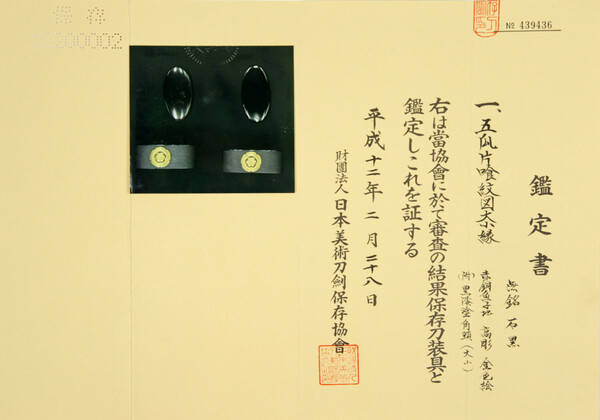 鑑定書
一、五瓜片喰紋図大小縁
無銘 石黒
赤銅魚子地 高彫 金色絵
(附) 黒漆塗角頭(大小)
右は當協會に於て審査の結果保存刀装具と
鑑定しこれを証する
平成十二年二月二十八日
財團法人日本美術刀劍保存協會
№ 439436
保存